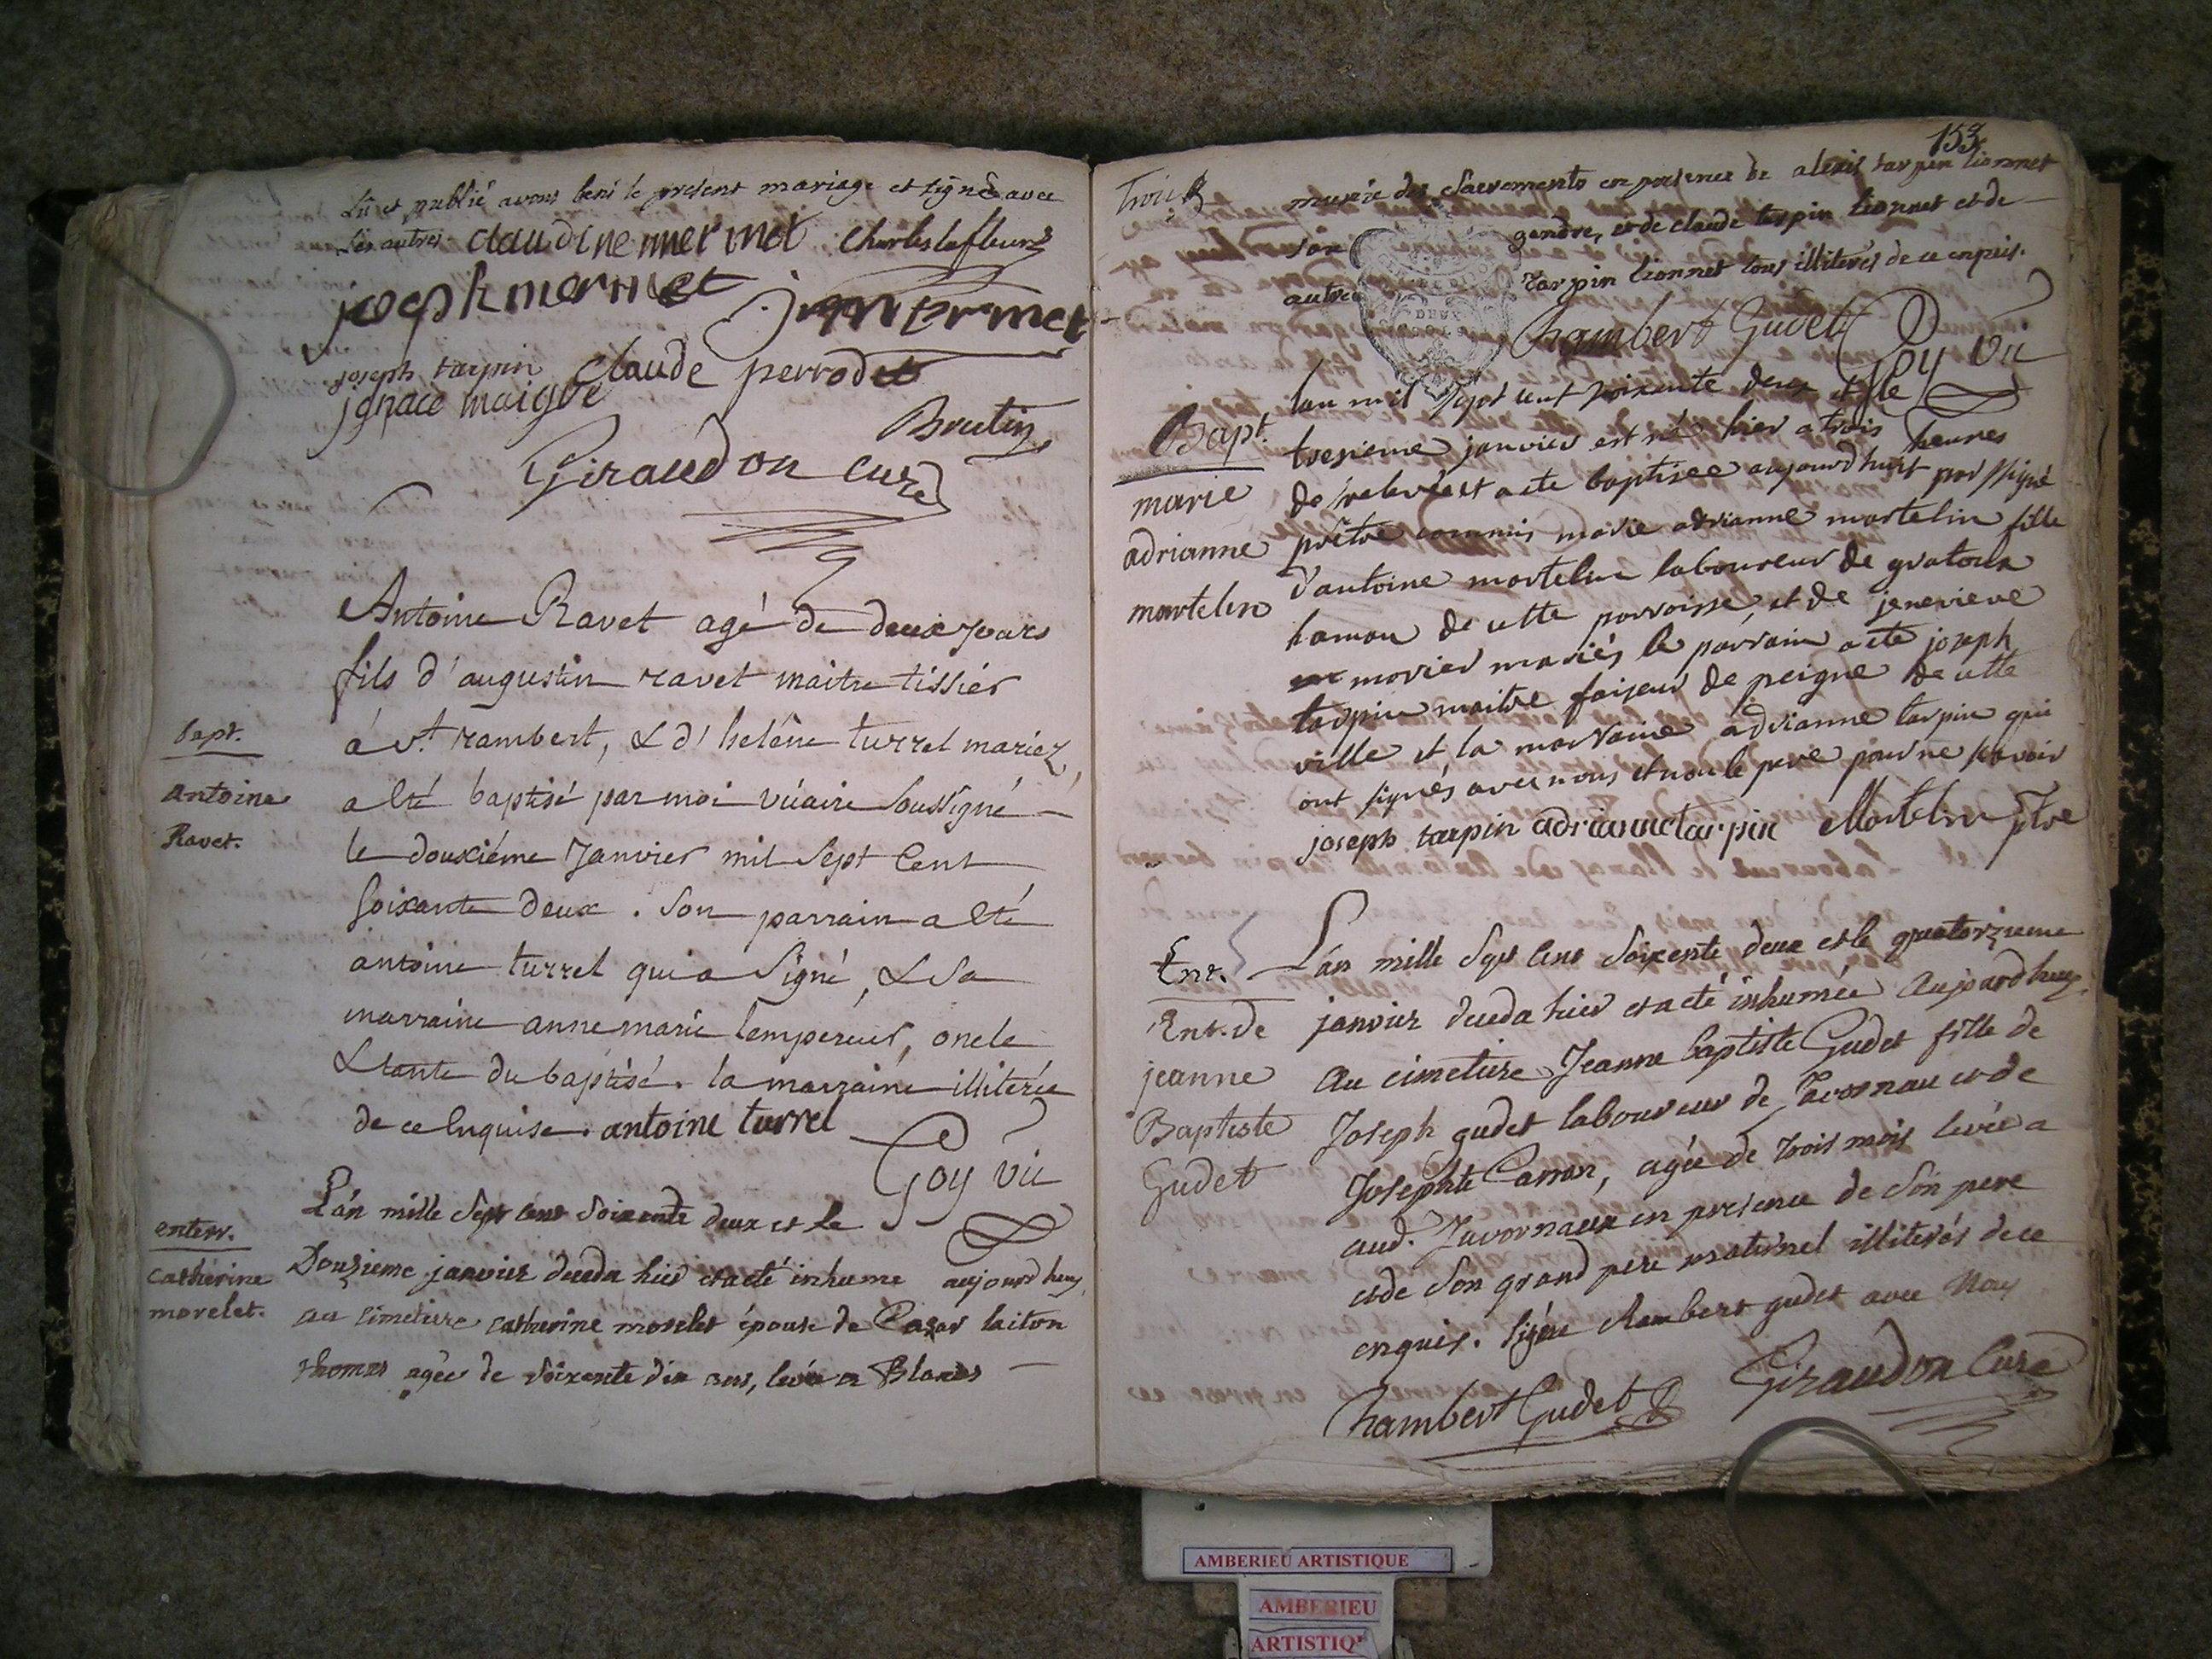 Lû et publié avons beni le present mariage et signé avec
les autres claudine mermet Charles lafleur
joseph mermet
joseph tarpin claude perrodet
ignace maigre
Brutin
Giraudon curé
Antoine Ravet agé de deux jours
fils d'augustin ravet maitre tissier
á st rambert, & d'heléne turrel mariez,
bapt.
antoine
Ravet.
a eté baptisé par moi vicaire soussigné
le douxiéme Janvier mil sept cent
soixante deux. son parrain a eté
antoine turrel qui a signé, & sa
marraine anne marie lempereur, oncle
& tante du baptisé. la marraine illiterée
de ce enquise. antoine turrel
Goy vic
enterr.
catherine
morelet.
L'an mille sept cent soixente deux et le
Douzieme janvier deceda hier et a cté inhume aujourd huy
au cimetiere catherine morelet épouse de Cazar laiton
thomas agée de soixente dix ans, levée a Blanas
153
Trois
munie des sacrements en presence de alexis tarpin lionnet
son gendre, et de claude tarpin lionnet et de
autre tarpin lionnet tous illiterés de ce enquis.
Chambert Gudet Goy vic
Bapt.
marie
adrianne
martelin
lan mil sept cent soixante deux et le
tresieme janvier est né hier a trois heures
de relevé et a ete baptisee aujourdhuit par ssigné
prêtre commis marie adrianne martelin fille
d'antoine martelin laboureur de gratoux
hamau de cette parroisse, et de jenevieve
movier mariés le parrain a ete joseph
tarpin maitre faiseur de peigne de cette
ville et la marraine adrianne tarpin qui
ont signés avec nous et non le pere pour ne savoir
joseph tarpin adrianne tarpin Martelin ptre
Ent.
Ent. de
jeanne
Baptiste
Gudet
L'an mille sept cent soixente deux et le quatorzieme
janvier deceda hier et a cté inhumée aujourdhuy
au cimetiere Jeanne baptiste Gudet fille de
Joseph gudet laboureur de Javornau et de
Josephte Carron, agée de trois mois levée a
aud. Javornaux en presence de son pere
et de son grand pere maternel illiterés de ce
enquis. signé Chambert gudet avec nous
Chambert Gudet Giraudon Curé
AMBERIEU ARTISTIQUE
AMBERIEU
ARTISTIQ